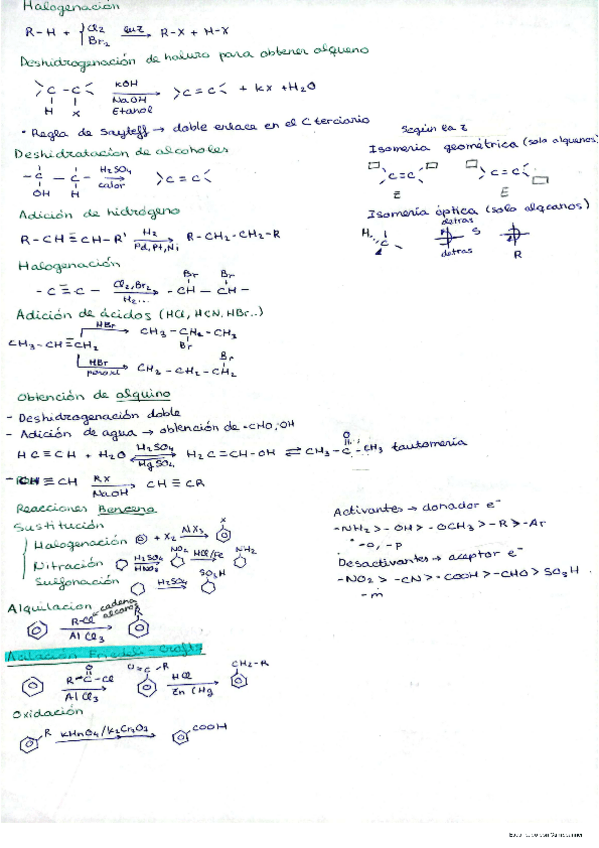 Halogenación
R-H + { Cl2 Br2 luz → R-X + H-X
Deshidrogenación de haluro para obtener alqueno
>C-C< H X KOH NaOH Etanol → >C=C< + KX + H2O
• Regla de Sayteff → doble enlace en el C terciario
Deshidratación de alcoholes
-C-C- OH H H2SO4 calor → >C=C<
Adición de hidrógeno
R-CH≡CH-R' H2 Pd,Pt,Ni → R-CH2-CH2-R
Halogenación
-C≡C- Cl2,Br2 H2... → -CH-CH- Br Br
Adición de ácidos (HCl, HCN, HBr..)
HBr → CH3-CH2-CH3 Br
CH3-CH≡CH2
HBr peroxi → CH2-CH2-CH2 Br
Obtención de alquino
- Deshidrogenación doble
- Adición de agua → obtención de -CHO, OH
HC≡CH + H2O H2SO4 HgSO4 ⇌ H2C=CH-OH ⇌ CH3-C-CH3 O tautomería
- CH≡CH RX NaOH → CH≡CR
Reacciones Benceno
Sustitución
Halogenación + X2 NX3 → X
Nitración H2SO4 HNO3 → NO2 HCl/Fe → NH2
Sulfonación H2SO4 → SO3H
Alquilación
R-Cl AlCl3 → R cadena
Acilación Friedel-Crafts
R-C-Cl O AlCl3 → O=C-R HCl Zn (Hg → CH2-R
Oxidación
R KHnO4/K2Cr2O3 → COOH
Según la Z
Isomería geométrica (solo alquenos)
C=C Z C=C E
Isomería óptica (solo alqcanos)
H C detras S detras R
Activantes → donador e-
-NH2 > -OH > -OCH3 > -R > -Ar
-o, -p
Desactivantes → aceptor e-
-NO2 > -CN > -COOH > -CHO > SO3H.
-m